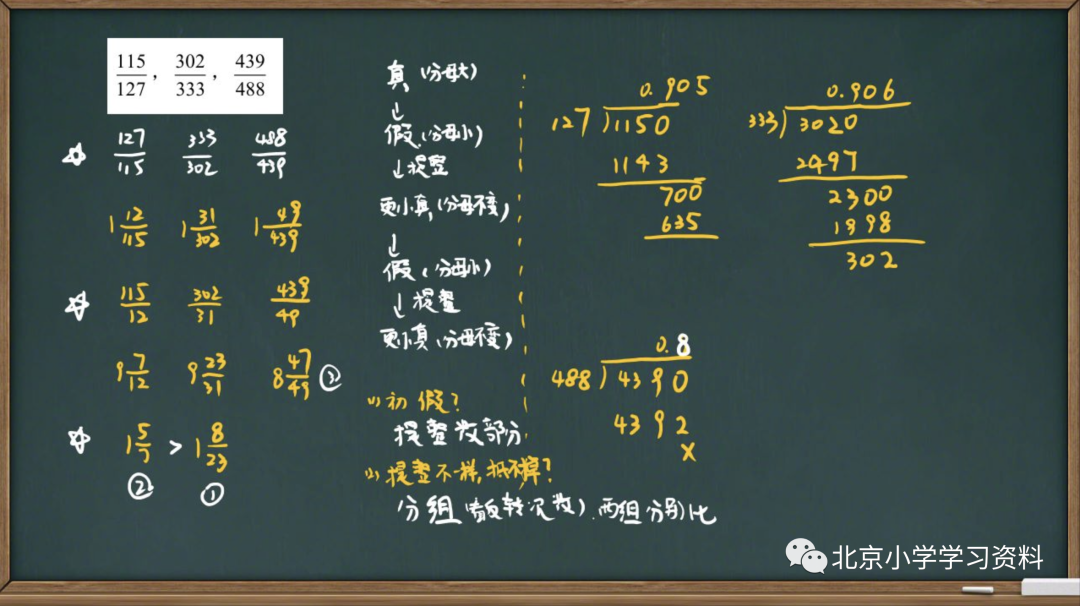 115/127, 302/333, 439/488
127/115 333/302 488/439
1 12/115 1 31/302 1 49/439
115/12 302/31 439/49
9 7/12 9 23/31 8 47/49 ③
1 5/7 > 1 8/23
② ①
真(分母大)
↓
假(分母小)
↓提整
更小真(分母不变)
↓
假(分母小)
↓提整
更小真(分母不变)
(1)初假?
提整数部分
(2)提整不一样,抵不掉?
分组(翻转次数).两组分别比
0.905
127)1150
1143
700
635
0.906
333)3020
2997
2300
1998
302
0.8
488)4390
4392
×
北京小学学习资料